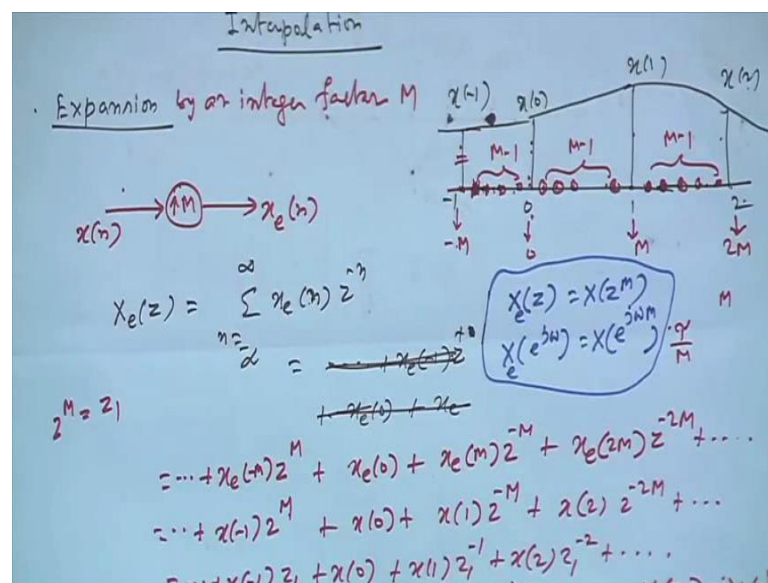 Interpolation
. Expansion by an integer factor M
x(-1) x(0) x(1) x(2)
M-1 M-1 M-1
-1 0 1 2
-M 0 M 2M
x(n) ↑M x_e(n)
X_e(z) = Σ_{n=-∞}^{∞} x_e(n) z^{-n}
X_e(z) = X(z^M)
X_e(e^{jω}) = X(e^{jωM})
M
π/M
z^M = z_1
=
+ x_e(0) + x_e
= ... + x_e(-M) z^M + x_e(0) + x_e(M) z^{-M} + x_e(2M) z^{-2M} + ....
= ... + x(-1) z^M + x(0) + x(1) z^{-M} + x(2) z^{-2M} + ...
x(-1) z_1 + x(0) + x(1) z_1^{-1} + x(2) z_1^{-2} + .....